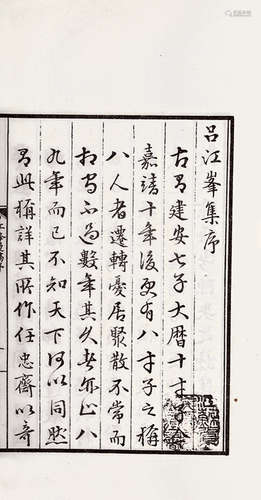 吕江峯集序
古有建安七子大暦十才子全
嘉靖十年後更有八才子之稱
八人者遷轉憂居聚散不常而
相守不過數年其久者亦止八
九年而已不知天下何以同然
有此稱詳其所作任忠齋以奇